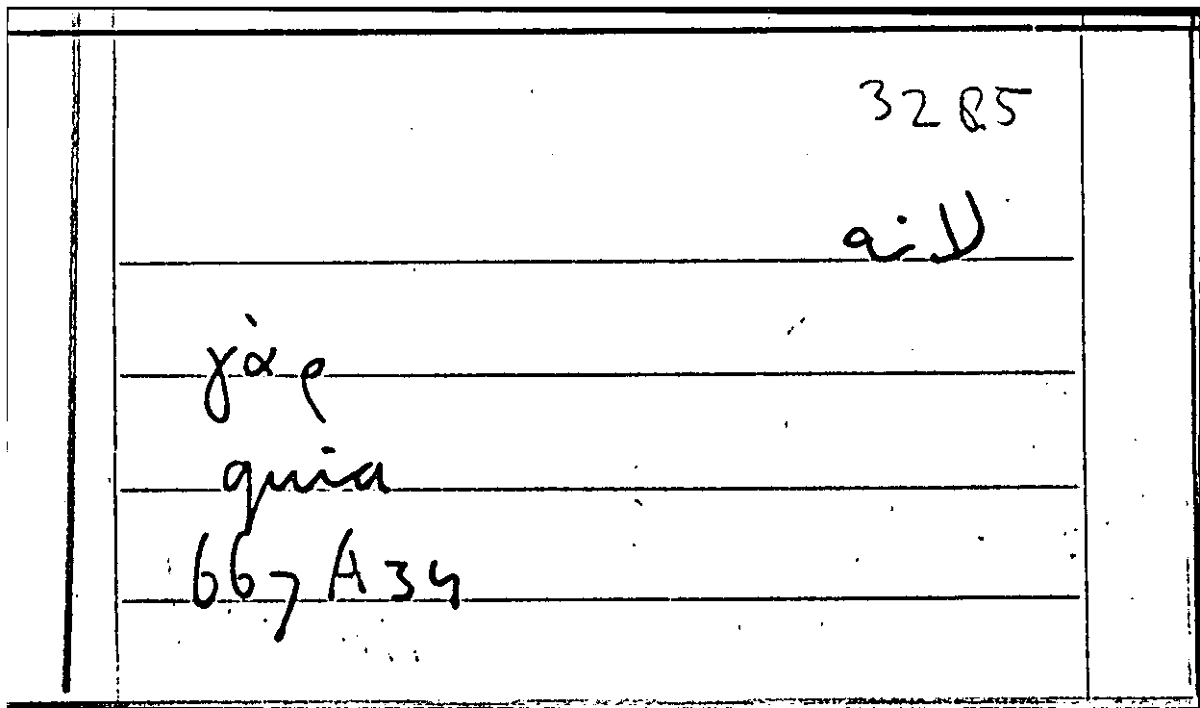 3285
لانه
γὰρ
quia
667 A 34